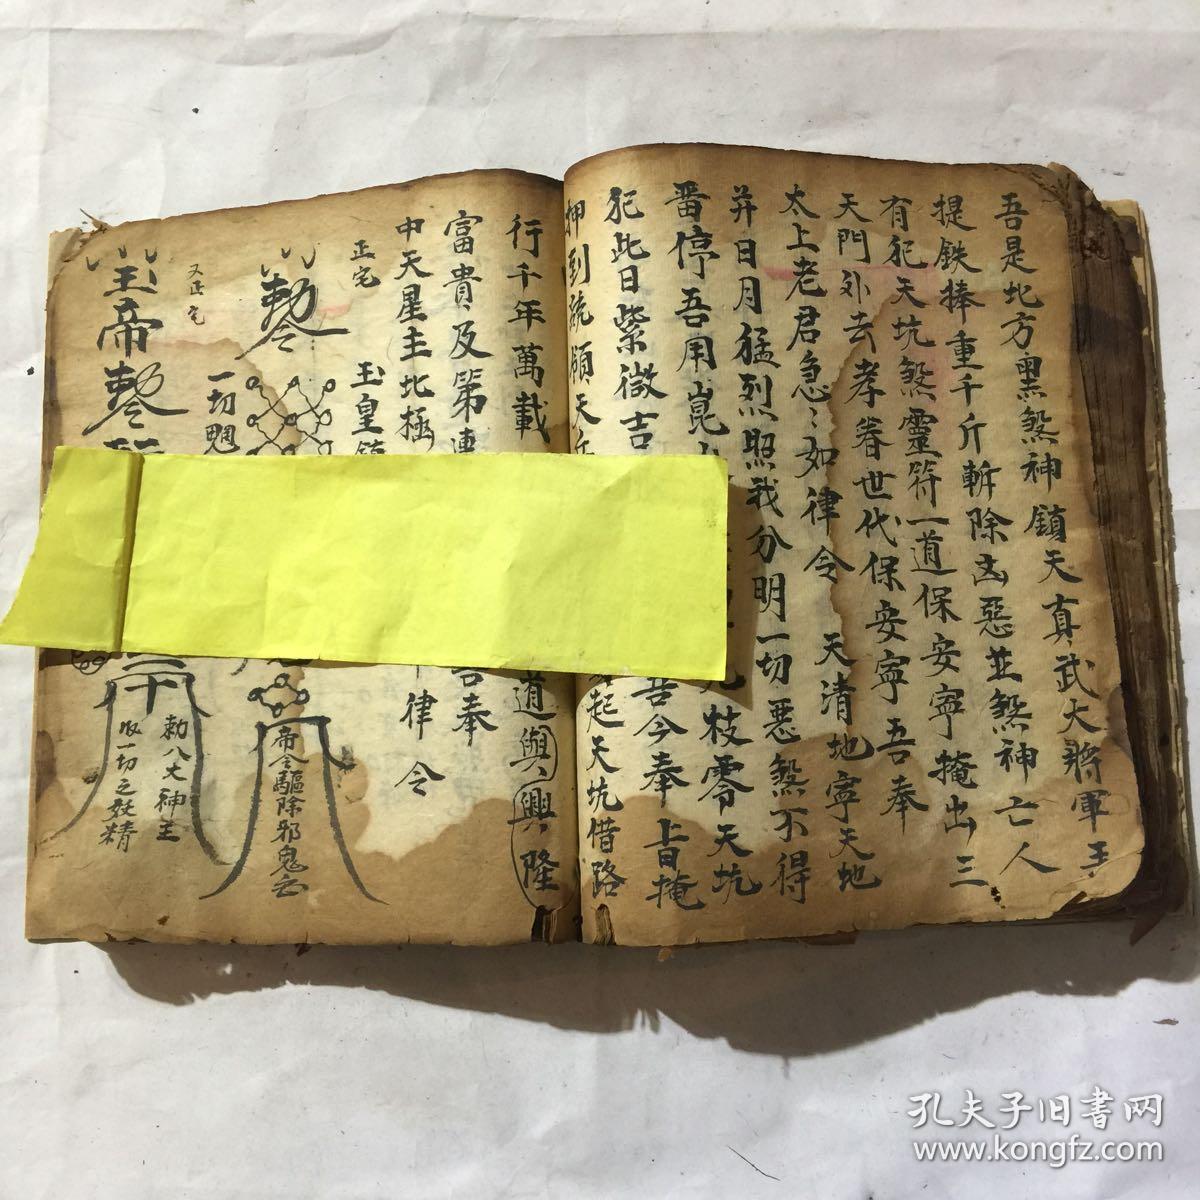 吾是北方黑煞神鎮天真武大將軍玉
提鉄捧重千斤斬除凶惡並煞神亡人
有犯天坑煞靈符一道保安寧掩出三
天門外去孝眷世代保安寧吾奉
太上老君急〻如律令 天清地寧天地
并日月猛烈照我分明一切惡煞不得
畨停吾用崑 九枝零天坑
犯此日紫微吉 吾今奉 旨掩
押到 天 起天坑借路
行千年萬載 道與興隆
富貴及第連 吉奉
中天星主北極 律令
正宅
玉皇鎮
勅令
帝令驅除邪鬼
一切
又正宅
玉帝勅令
勅八大神王
收一切之妖精
孔夫子旧書网
www.kongfz.com